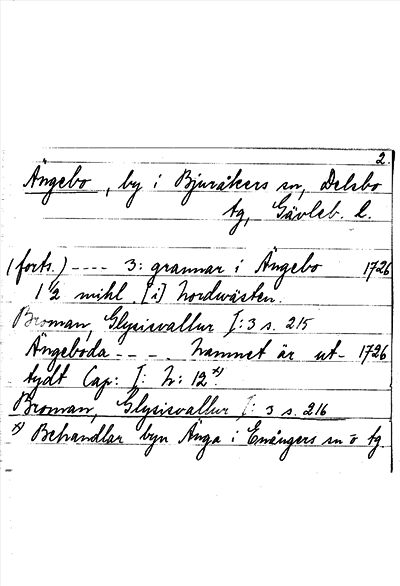 2.
Ängebo, by i Bjuråkers sn, Delsbo
tg, Gävleb. l.
(forts.) ---- 3: grannar i Ängebo 1726
1/2 mihl [i] Nordwästen.
Broman, Glysisvallur I:3 s. 215
Ängeboda - - - . Namnet är ut- 1726
tydt Cap: I: h: 12 x)
Broman, Glysisvallur I: 3 s. 216
x) Behandlar byn Änga i Enångers sn o tg